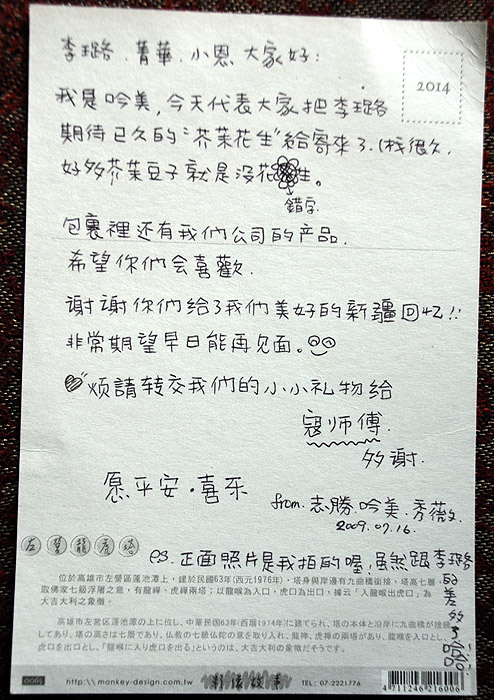 李璐、菁華、小恩 大家好：
2014
我是吟美，今天代表大家把李璐
期待已久的"芥茉花生"給寄來了（找很久，
好多芥茉豆子就是沒花生。
錯字
包裹裡还有我们公司的产品，
希望你們会喜歡．
谢谢你們给了我们美好的新疆回忆!!
非常期望早日能再见面。
烦請转交我們的小小礼物給
寇师傅．
多谢．
愿平安·喜乐
from. 志勝．吟美．秀薇．
2009.07.16.
左營龍虎塔
ps. 正面照片是我拍的喔！虽然跟李璐
的差多了
哈哈
位於高雄市左營區蓮池潭上，建於民國63年(西元1976年)，塔身與岸邊有九曲橋銜接，塔高七層
取佛家七級浮屠之意，有龍禪、虎禪兩塔；以龍喉為入口，虎口為出口，據云「入龍喉出虎口」為
大吉大利之象徵。
高雄市左営区蓮池潭の上に位し、中華民国63年(西暦1974年)に建てられ、塔の本体と沿岸に九曲橋が接続
しており、塔の高さは七層であり、仏教の七級仏陀の意を取り入れ、龍禅、虎禅の兩塔があり、龍喉を入口とし、
虎口を出口とし、「龍喉に入り虎口を出る」というのは、大吉大利の象徴だそうです。
http:\\monkey-design.com.tw
影像故事
TEL: 07-2221776
4711246216006